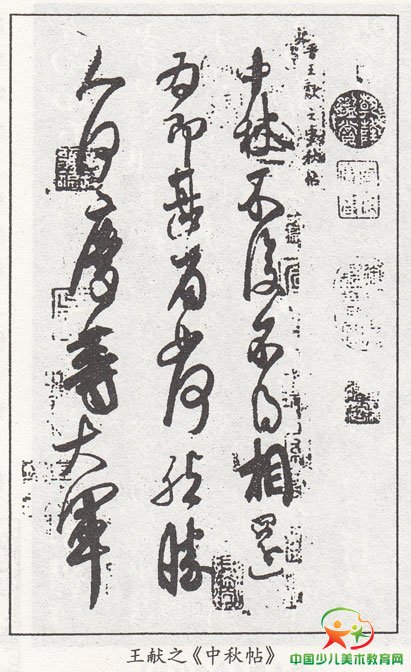 晉王獻之中秋帖
中秋不復不得相還
為即甚省如何然勝
人何慶等大軍
王献之《中秋帖》
中国少儿美术教育网